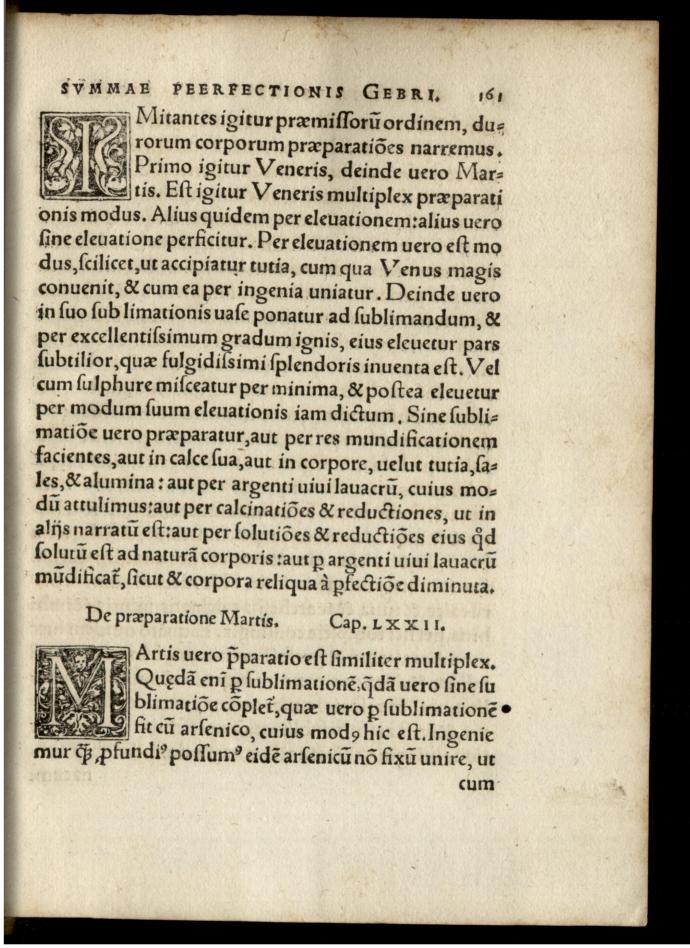 SVMMAE PEERFECTIONIS GEBRI. 161
IMitantes igitur præmissorũ ordinem, du=
rorum corporum præparatiões narremus.
Primo igitur Veneris, deinde uero Mar=
tis. Est igitur Veneris multiplex præparati
onis modus. Alius quidem per eleuationem: alius uero
sine eleuatione perficitur. Per eleuationem uero est mo
dus, scilicet, ut accipiatur tutia, cum qua Venus magis
conuenit, & cum ea per ingenia uniatur. Deinde uero
in suo sublimationis uase ponatur ad sublimandum, &
per excellentissimum gradum ignis, eius eleuetur pars
subtilior, quæ fulgidissimi splendoris inuenta est. Vel
cum sulphure misceatur per minima, & postea eleuetur
per modum suum eleuationis iam dictum. Sine subli=
matiõe uero præparatur, aut per res mundificationem
facientes, aut in calce sua, aut in corpore, uelut tutia, sa=
les, & alumina: aut per argenti uiui lauacrũ, cuius mo=
dũ attulimus: aut per calcinatiões & reductiones, ut in
alijs narratũ est: aut per solutiões & reductiões eius qd̃
solutũ est ad naturã corporis: aut ꝑ argenti uiui lauacrũ
mũdificat̃, sicut & corpora reliqua à ꝑfectiõe diminuta.
De præparatione Martis. Cap. LXXII.
MArtis uero p̃paratio est similiter multiplex.
Quędã eni ꝑ sublimationẽ, q̃dã uero sine su
blimatiõe cõplet̃, quæ uero ꝑ sublimationẽ
fit cũ arsenico, cuius modꝰ hic est. Ingenie
mur ꝙ̃ ꝓfundiꝰ possumꝰ eidẽ arsenicũ nõ fixũ unire, ut
cum